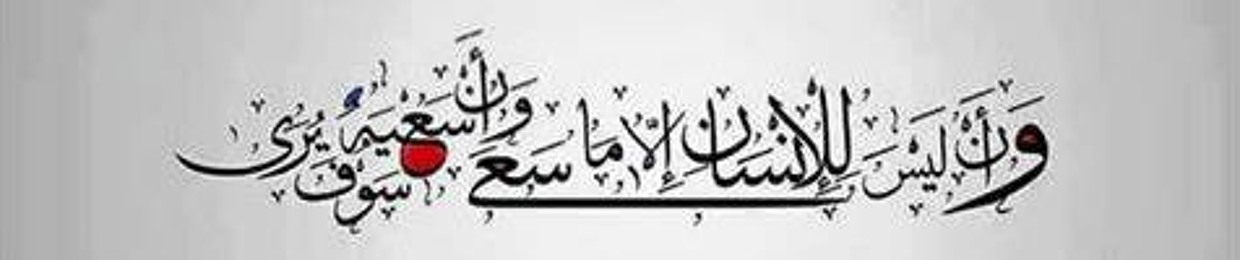 وَأَن لَيسَ لِلإِنسَانِ إِلّا مَا سَعَى وَأَنَّ سَعيَهُ سَوفَ يُرَى